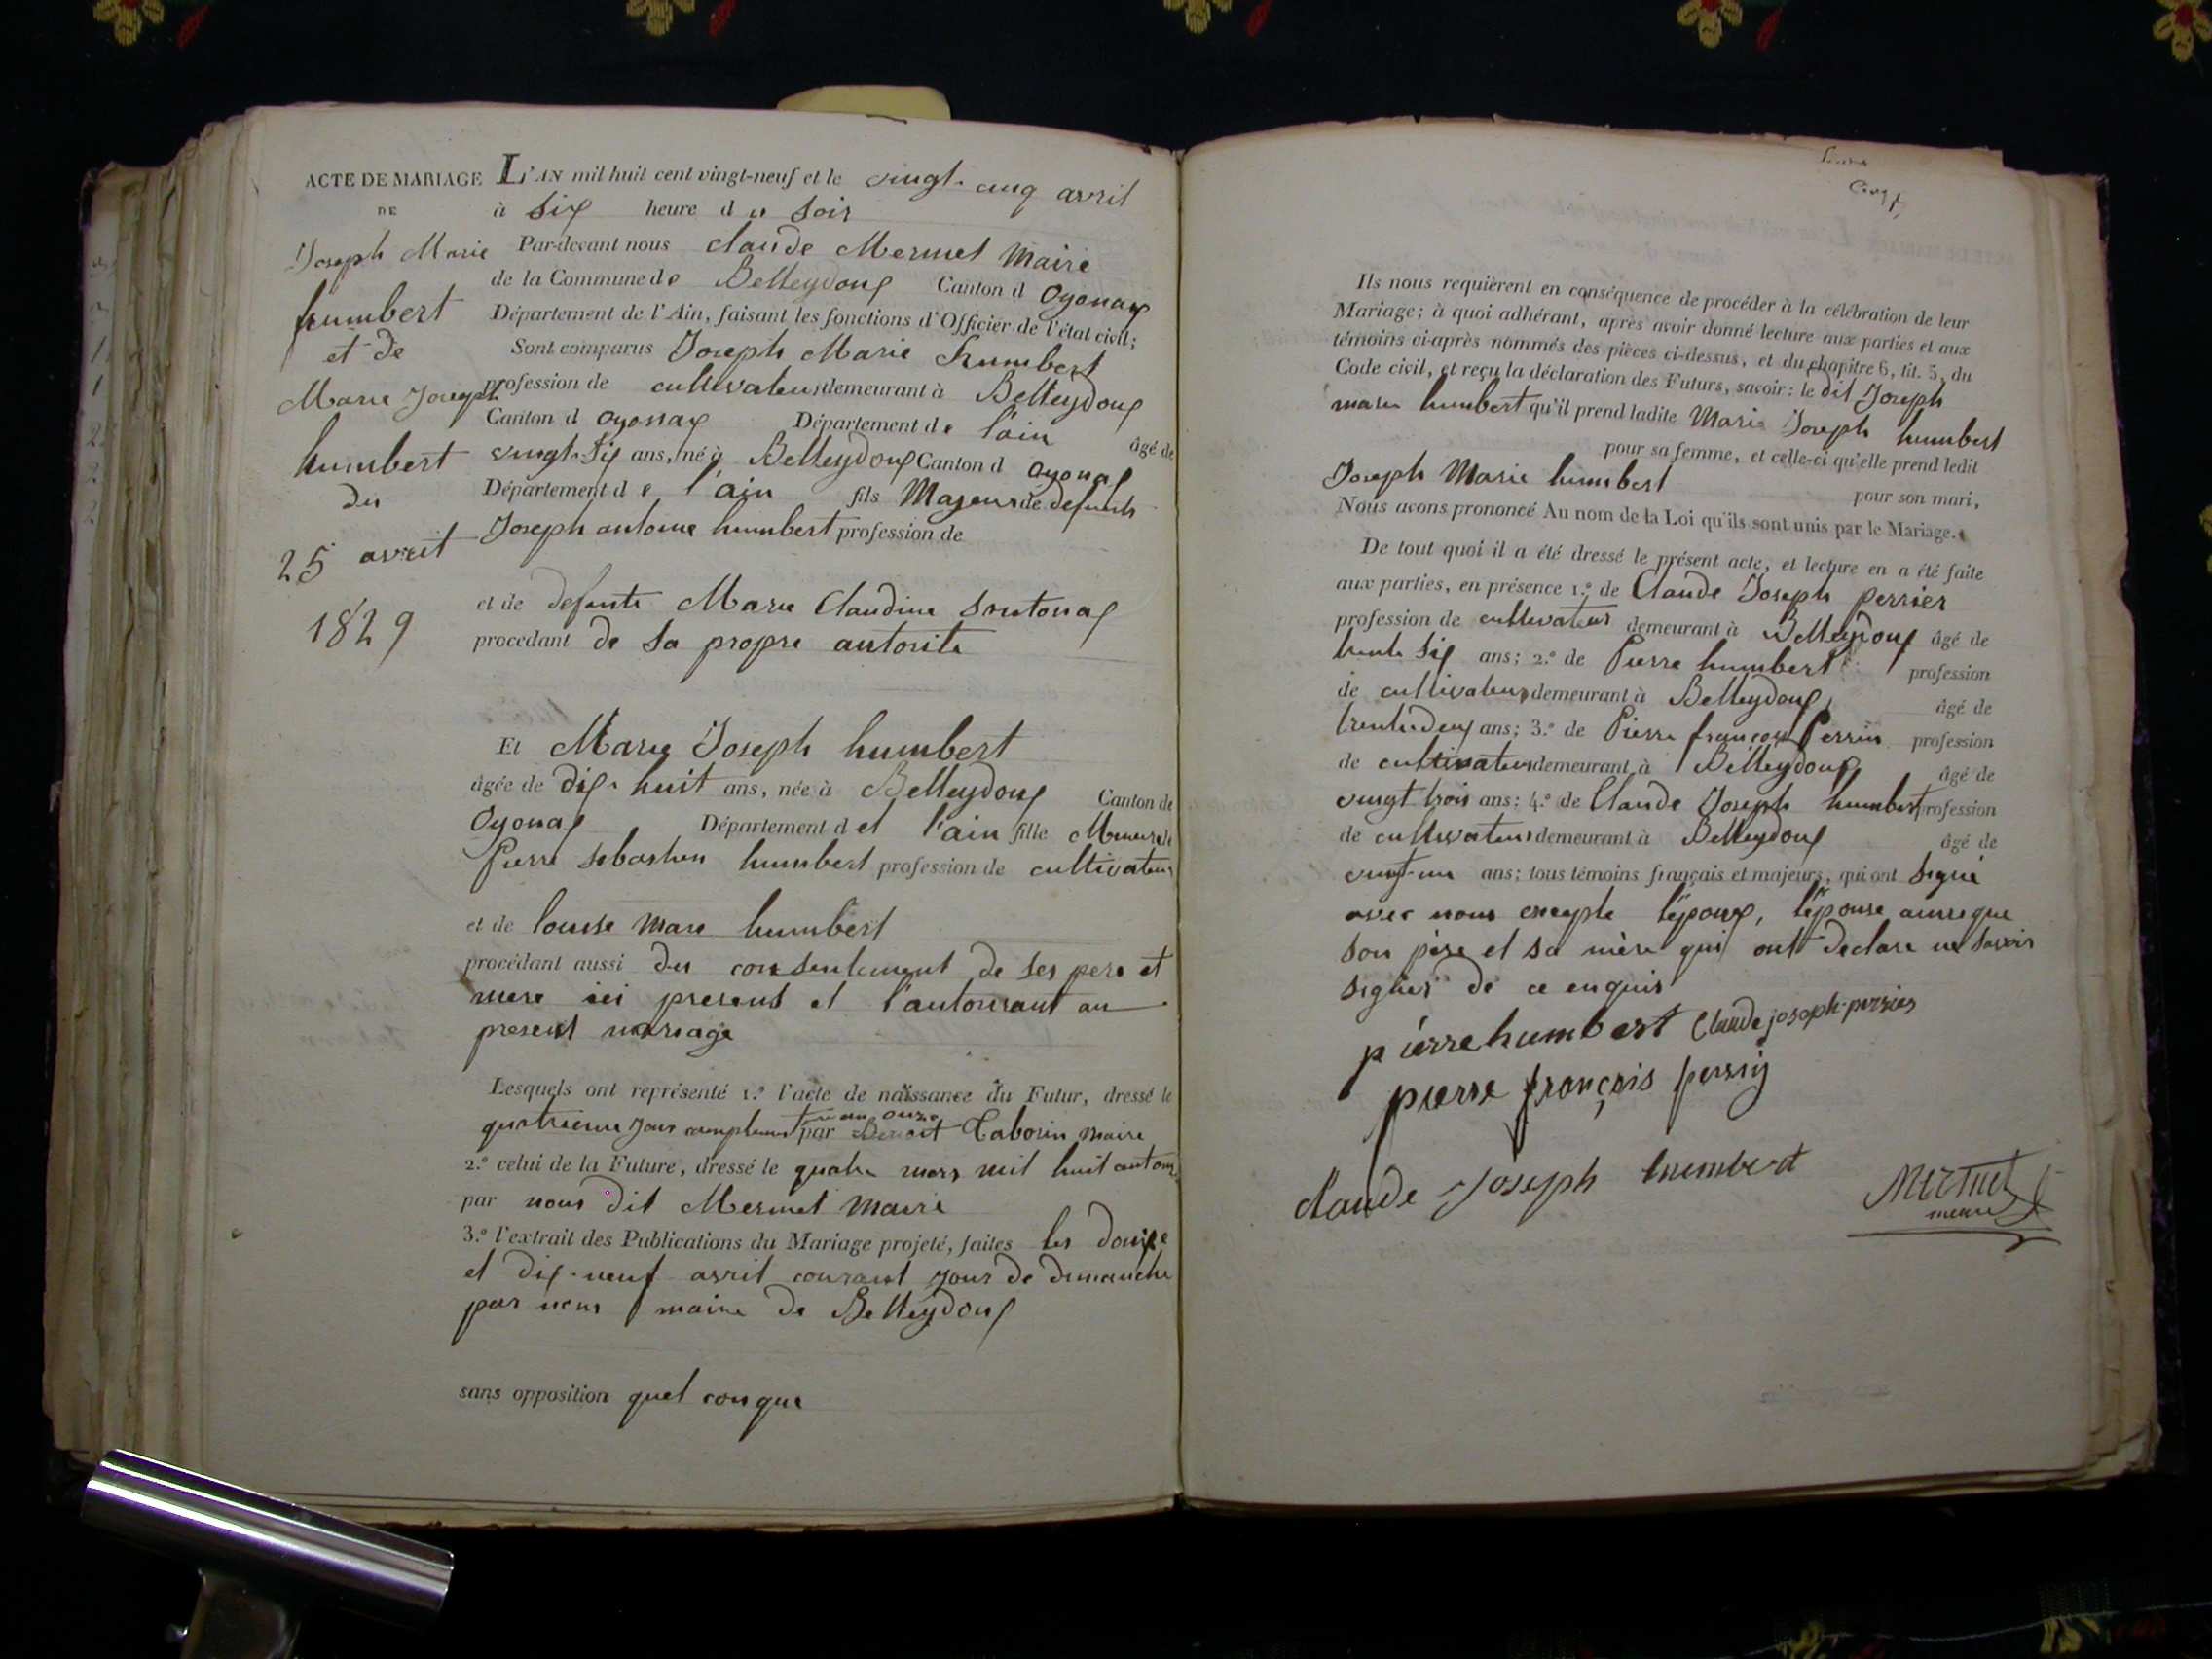 ACTE DE MARIAGE
DE
Joseph Marie
humbert
et de
Marie Joseph
humbert
du
25 avril
1829
L'AN mil huit cent vingt-neuf et le vingt-cinq avril
à six heure du soir
Par-devant nous claude Mermet Maire
de la Commune de Belleydoux Canton d oyonax
Département de l'Ain, faisant les fonctions d'Officier de l'état civil;
Sont comparus Joseph Marie humbert
profession de cultivateur demeurant à Belleydoux
Canton d oyonax Département de l'ain âgé de
vingt-six ans, né à Belleydoux Canton d oyonax
Département de l'ain fils Majeur de defunts
Joseph antoine humbert profession de
et de defunte Marie Claudine Sontonax
procédant de sa propre autorite
Et Marie Joseph humbert
âgée de dix-huit ans, née à Belleydoux Canton de
Oyonax Département de l'ain fille Mineur de
Pierre sebastien humbert profession de cultivateur
et de louise marie humbert
procédant aussi du consentement de ses pere et
mere ici presents et l'autorisant au
present mariage
Lesquels ont représenté 1.º l'acte de naissance du Futur, dressé le
an onze
quatrieme jour complementaire par Benoit Taborin maire
2.º celui de la Future, dressé le quatre mars mil huit cent onze
par nous dit Mermet Maire
3.º l'extrait des Publications du Mariage projeté, faites les douze
et dix-neuf avril courant jour de dimanche
par nous maire de Belleydoux
sans opposition quelconque
Ils nous requièrent en conséquence de procéder à la célébration de leur
Mariage; à quoi adhérant, après avoir donné lecture aux parties et aux
témoins ci-après nommés des pièces ci-dessus, et du chapitre 6, tit. 5, du
Code civil, et reçu la déclaration des Futurs, savoir: le dit Joseph
marie humbert qu'il prend ladite Marie Joseph humbert
pour sa femme, et celle-ci qu'elle prend ledit
Joseph Marie humbert pour son mari,
Nous avons prononcé Au nom de la Loi qu'ils sont unis par le Mariage.
De tout quoi il a été dressé le présent acte, et lecture en a été faite
aux parties, en présence 1.º de Claude Joseph perrier
profession de cultivateur demeurant à Belleydoux âgé de
trente six ans; 2.º de Pierre humbert profession
de cultivateur demeurant à Belleydoux âgé de
trente deux ans; 3.º de Pierre françois Perrin profession
de cultivateur demeurant à Belleydoux âgé de
vingt trois ans; 4.º de Claude Joseph humbert profession
de cultivateur demeurant à Belleydoux âgé de
vingt-un ans; tous témoins français et majeurs, qui ont signé
avec nous excepte l'époux, l'épouse ainsi que
son père et sa mère qui ont declare ne savoir
signer de ce enquis
pierre humbert Claude joseph perrier
pierre françois perrin
claude Joseph humbert
Mermet
maire